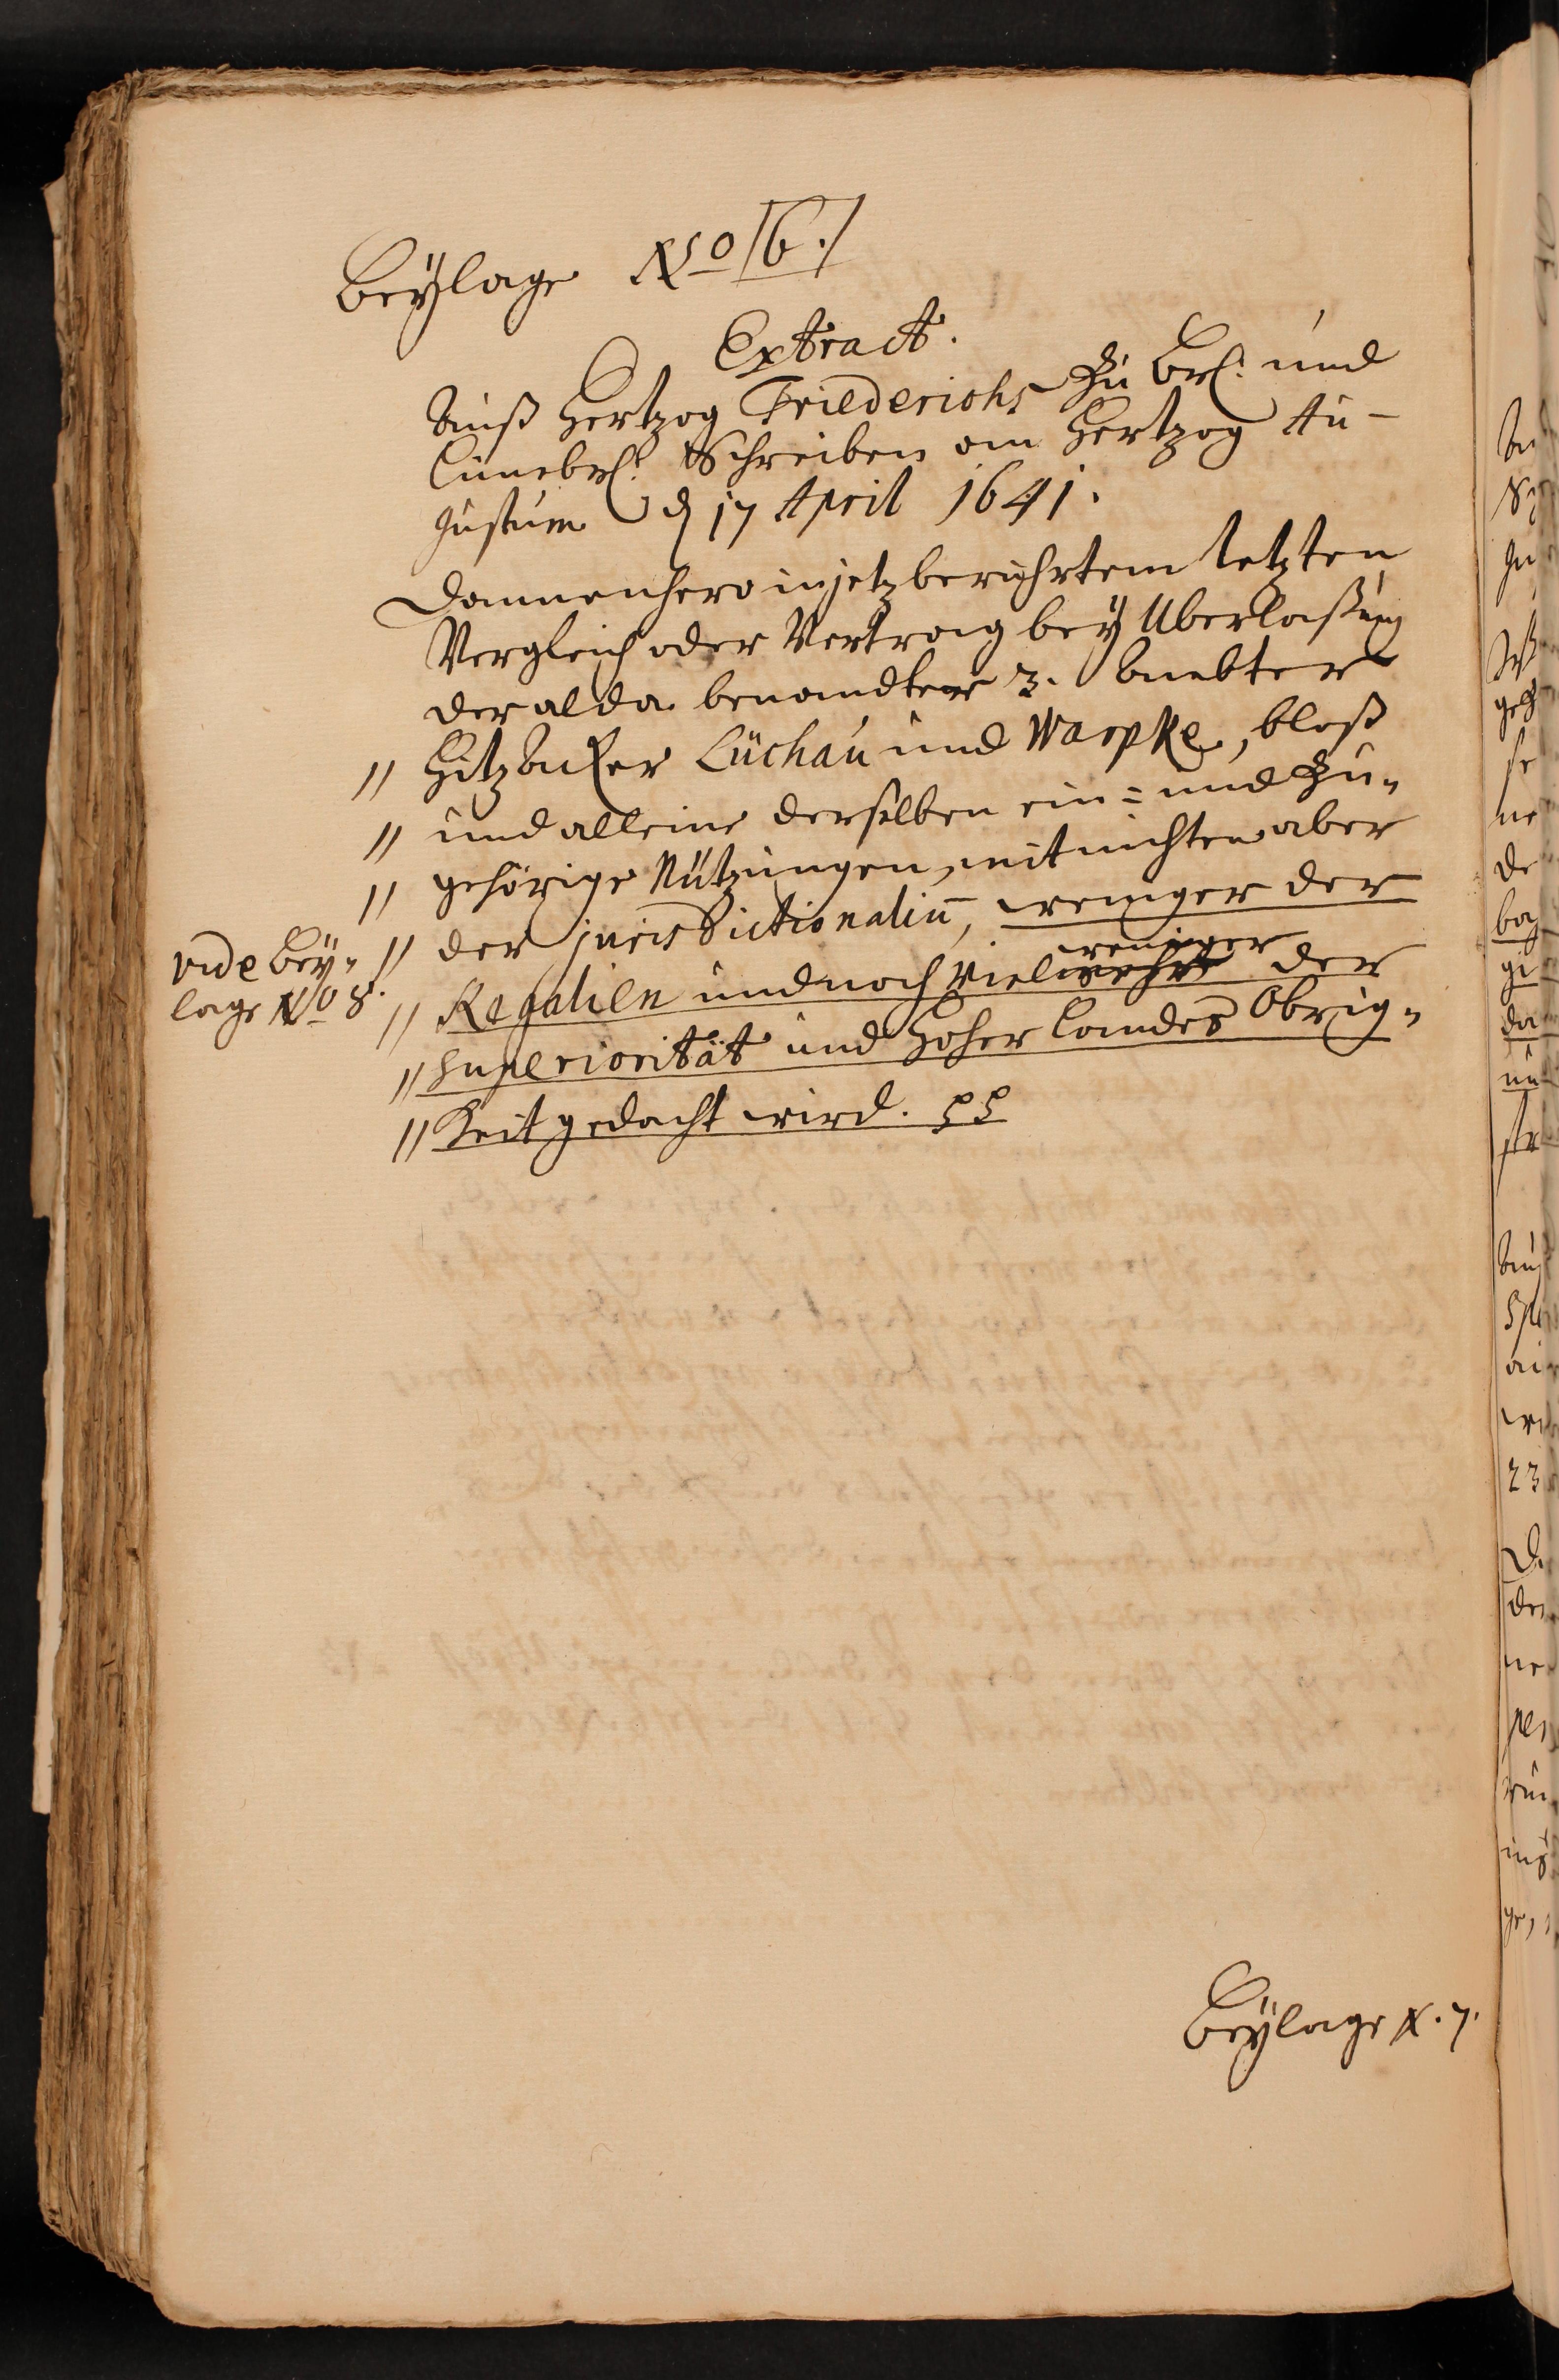 Beylage No 6.
Extract.
Auß Hertzog Friederichs zu Br. und
Lünebr. Schreiben an Hertzog Au-
gustum d 17 April 1641.
Dannenhero in jetz berührtem letzten
Vergleich oder Vertrag bey Uberlaßung
der alda benandter 3. Aembter
" Hitzacker Lüchau und Warpke, bloß
" und alleine derselben ein= und zu„
" gehörige Nützungen, mit nichten aber
" der jurisdictionaliū, weniger der
vide Bey„
lage No 8.
weniger
" Regalien und noch viel mehr der
" Superiorität und hoher Landes Obrig„
" Keit gedacht wird. pp
Beylage N. 7.